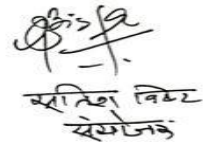 सतिश विष्ट
संयोजक